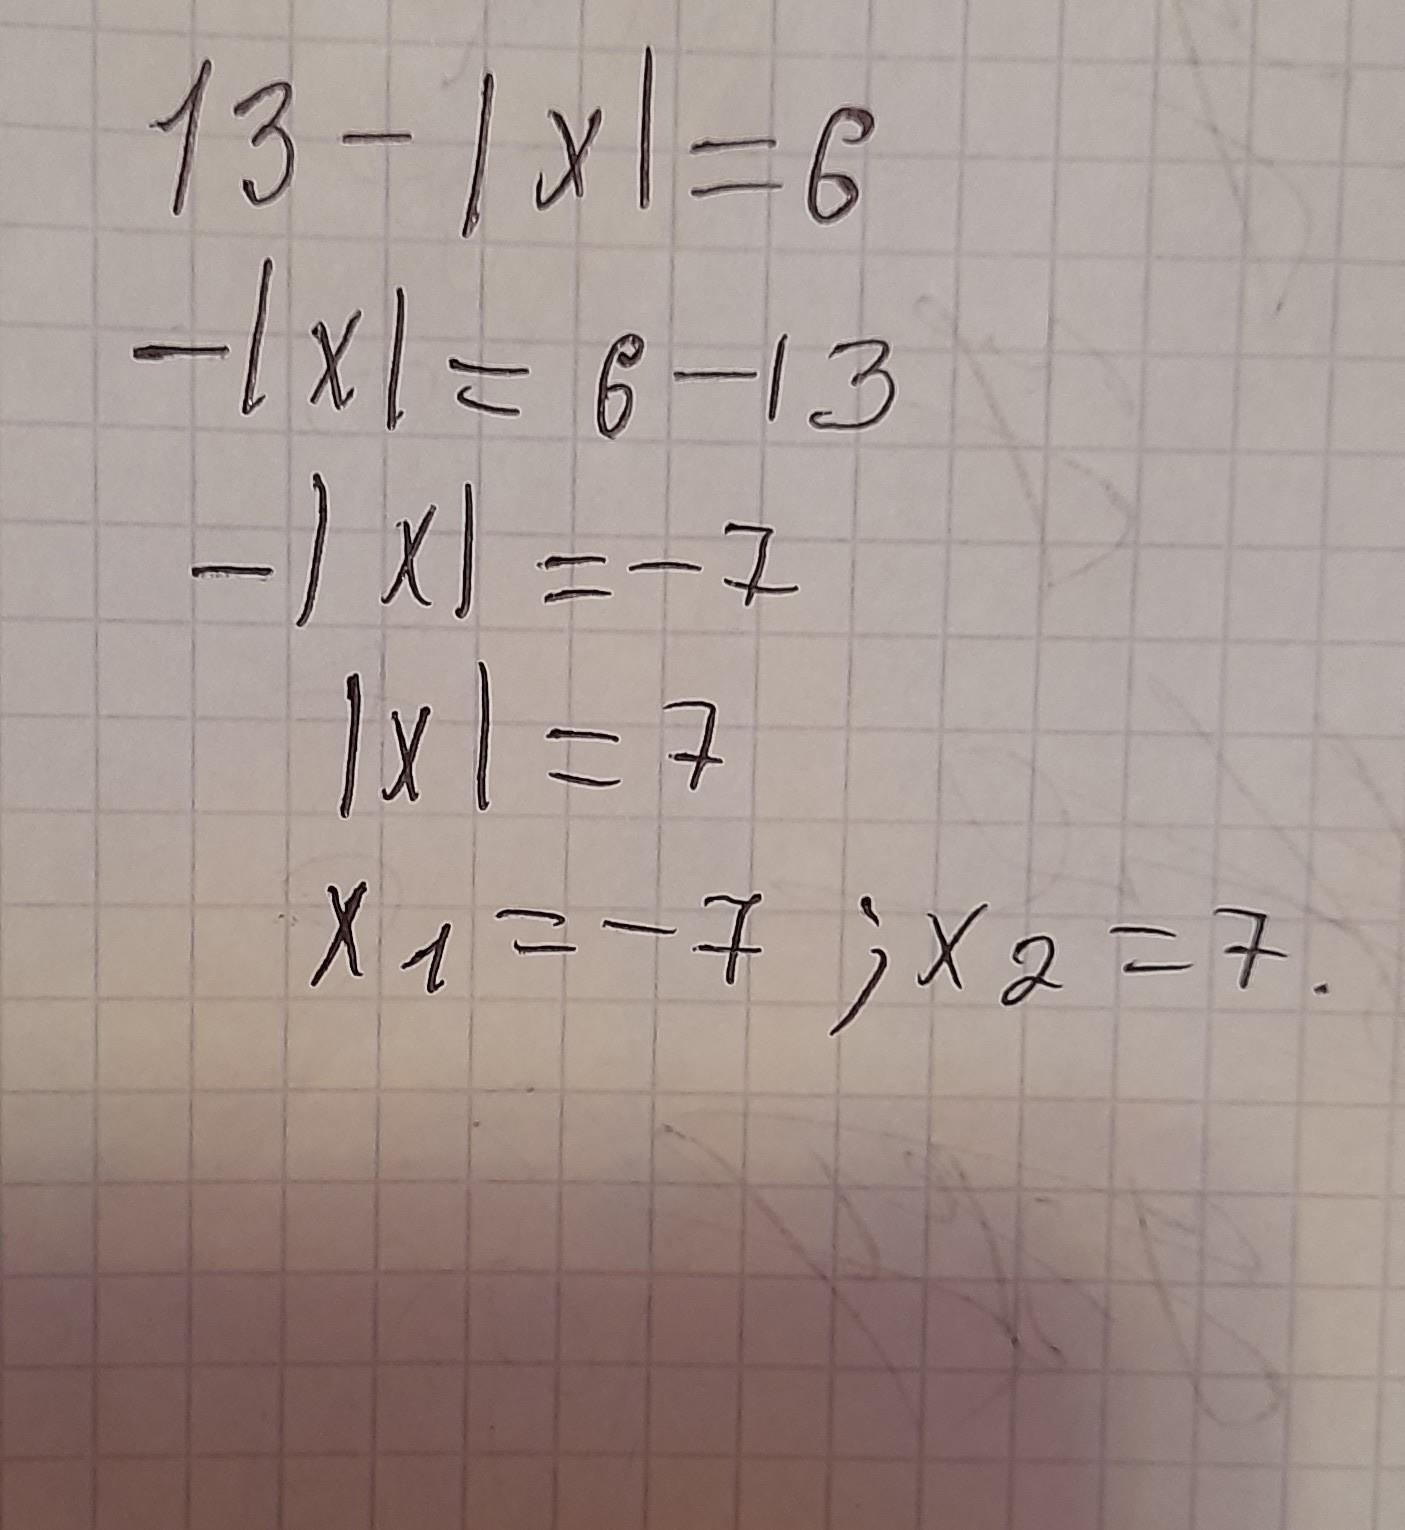 13 - |x| = 6
-|x| = 6 - 13
-|x| = -7
|x| = 7
x₁ = -7 ; x₂ = 7.